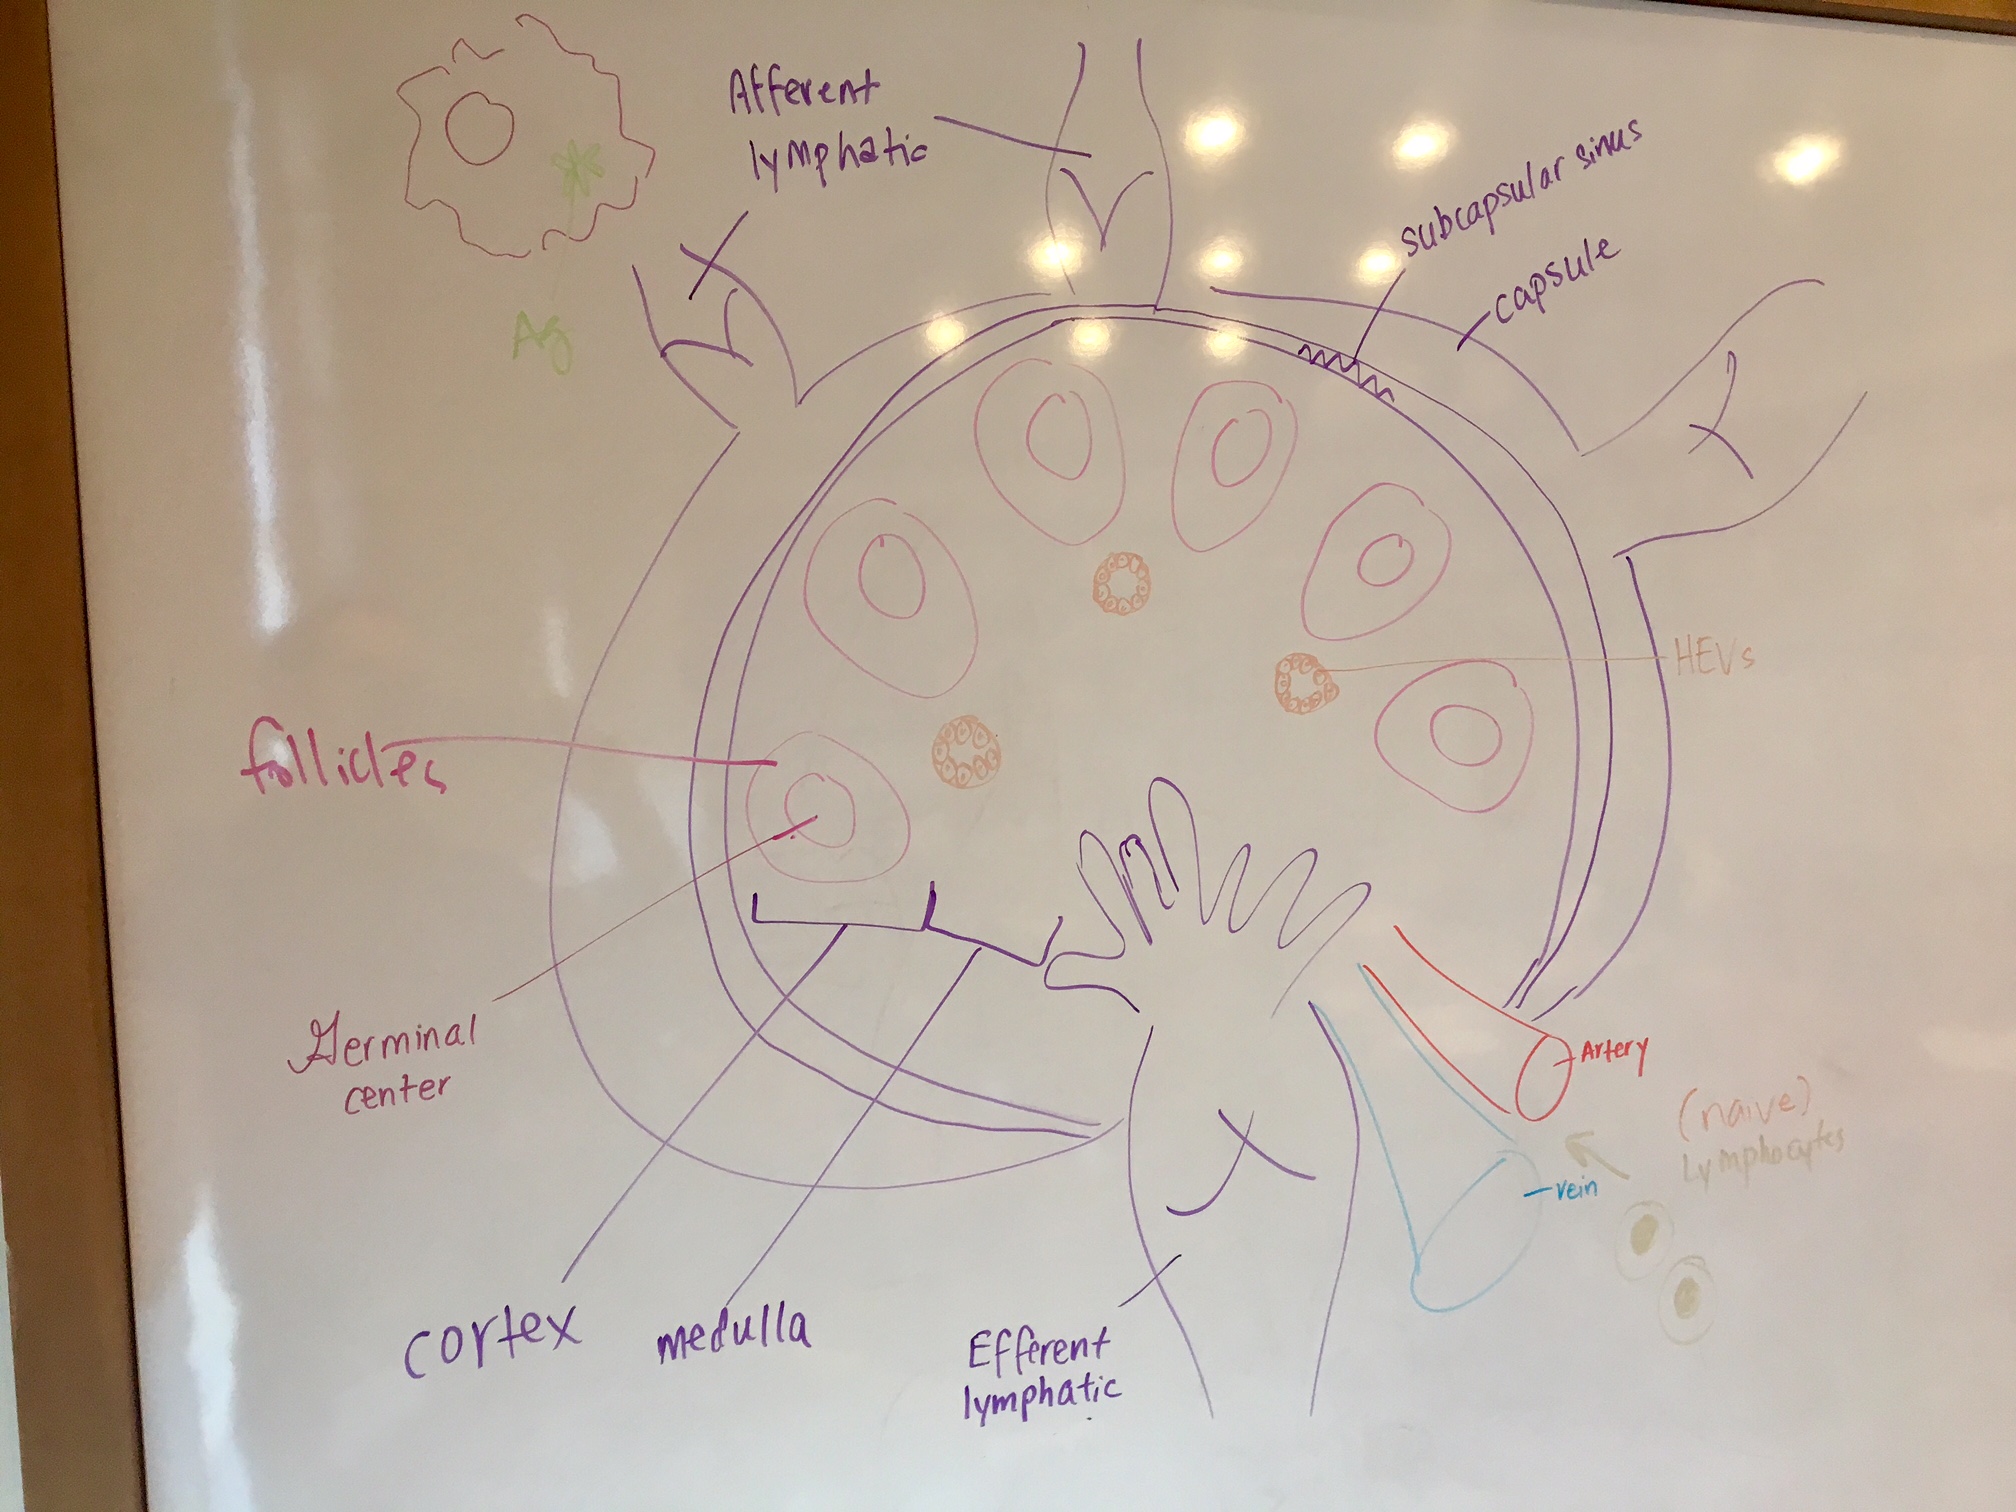 Afferent
lymphatic
subcapsular sinus
capsule
Ag
HEVs
follicles
Germinal
center
Artery
(naive)
Lymphocytes
vein
cortex
medulla
Efferent
lymphatic